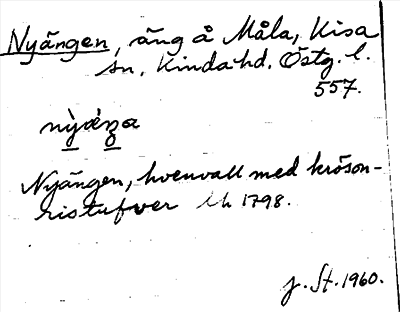 Nyängen, äng å Måla, Kisa
sn, Kinda hd. Östg. l.
557.
Nyängen, hvenvall med kröson-
ristufver lh 1798.
J. St. 1960.